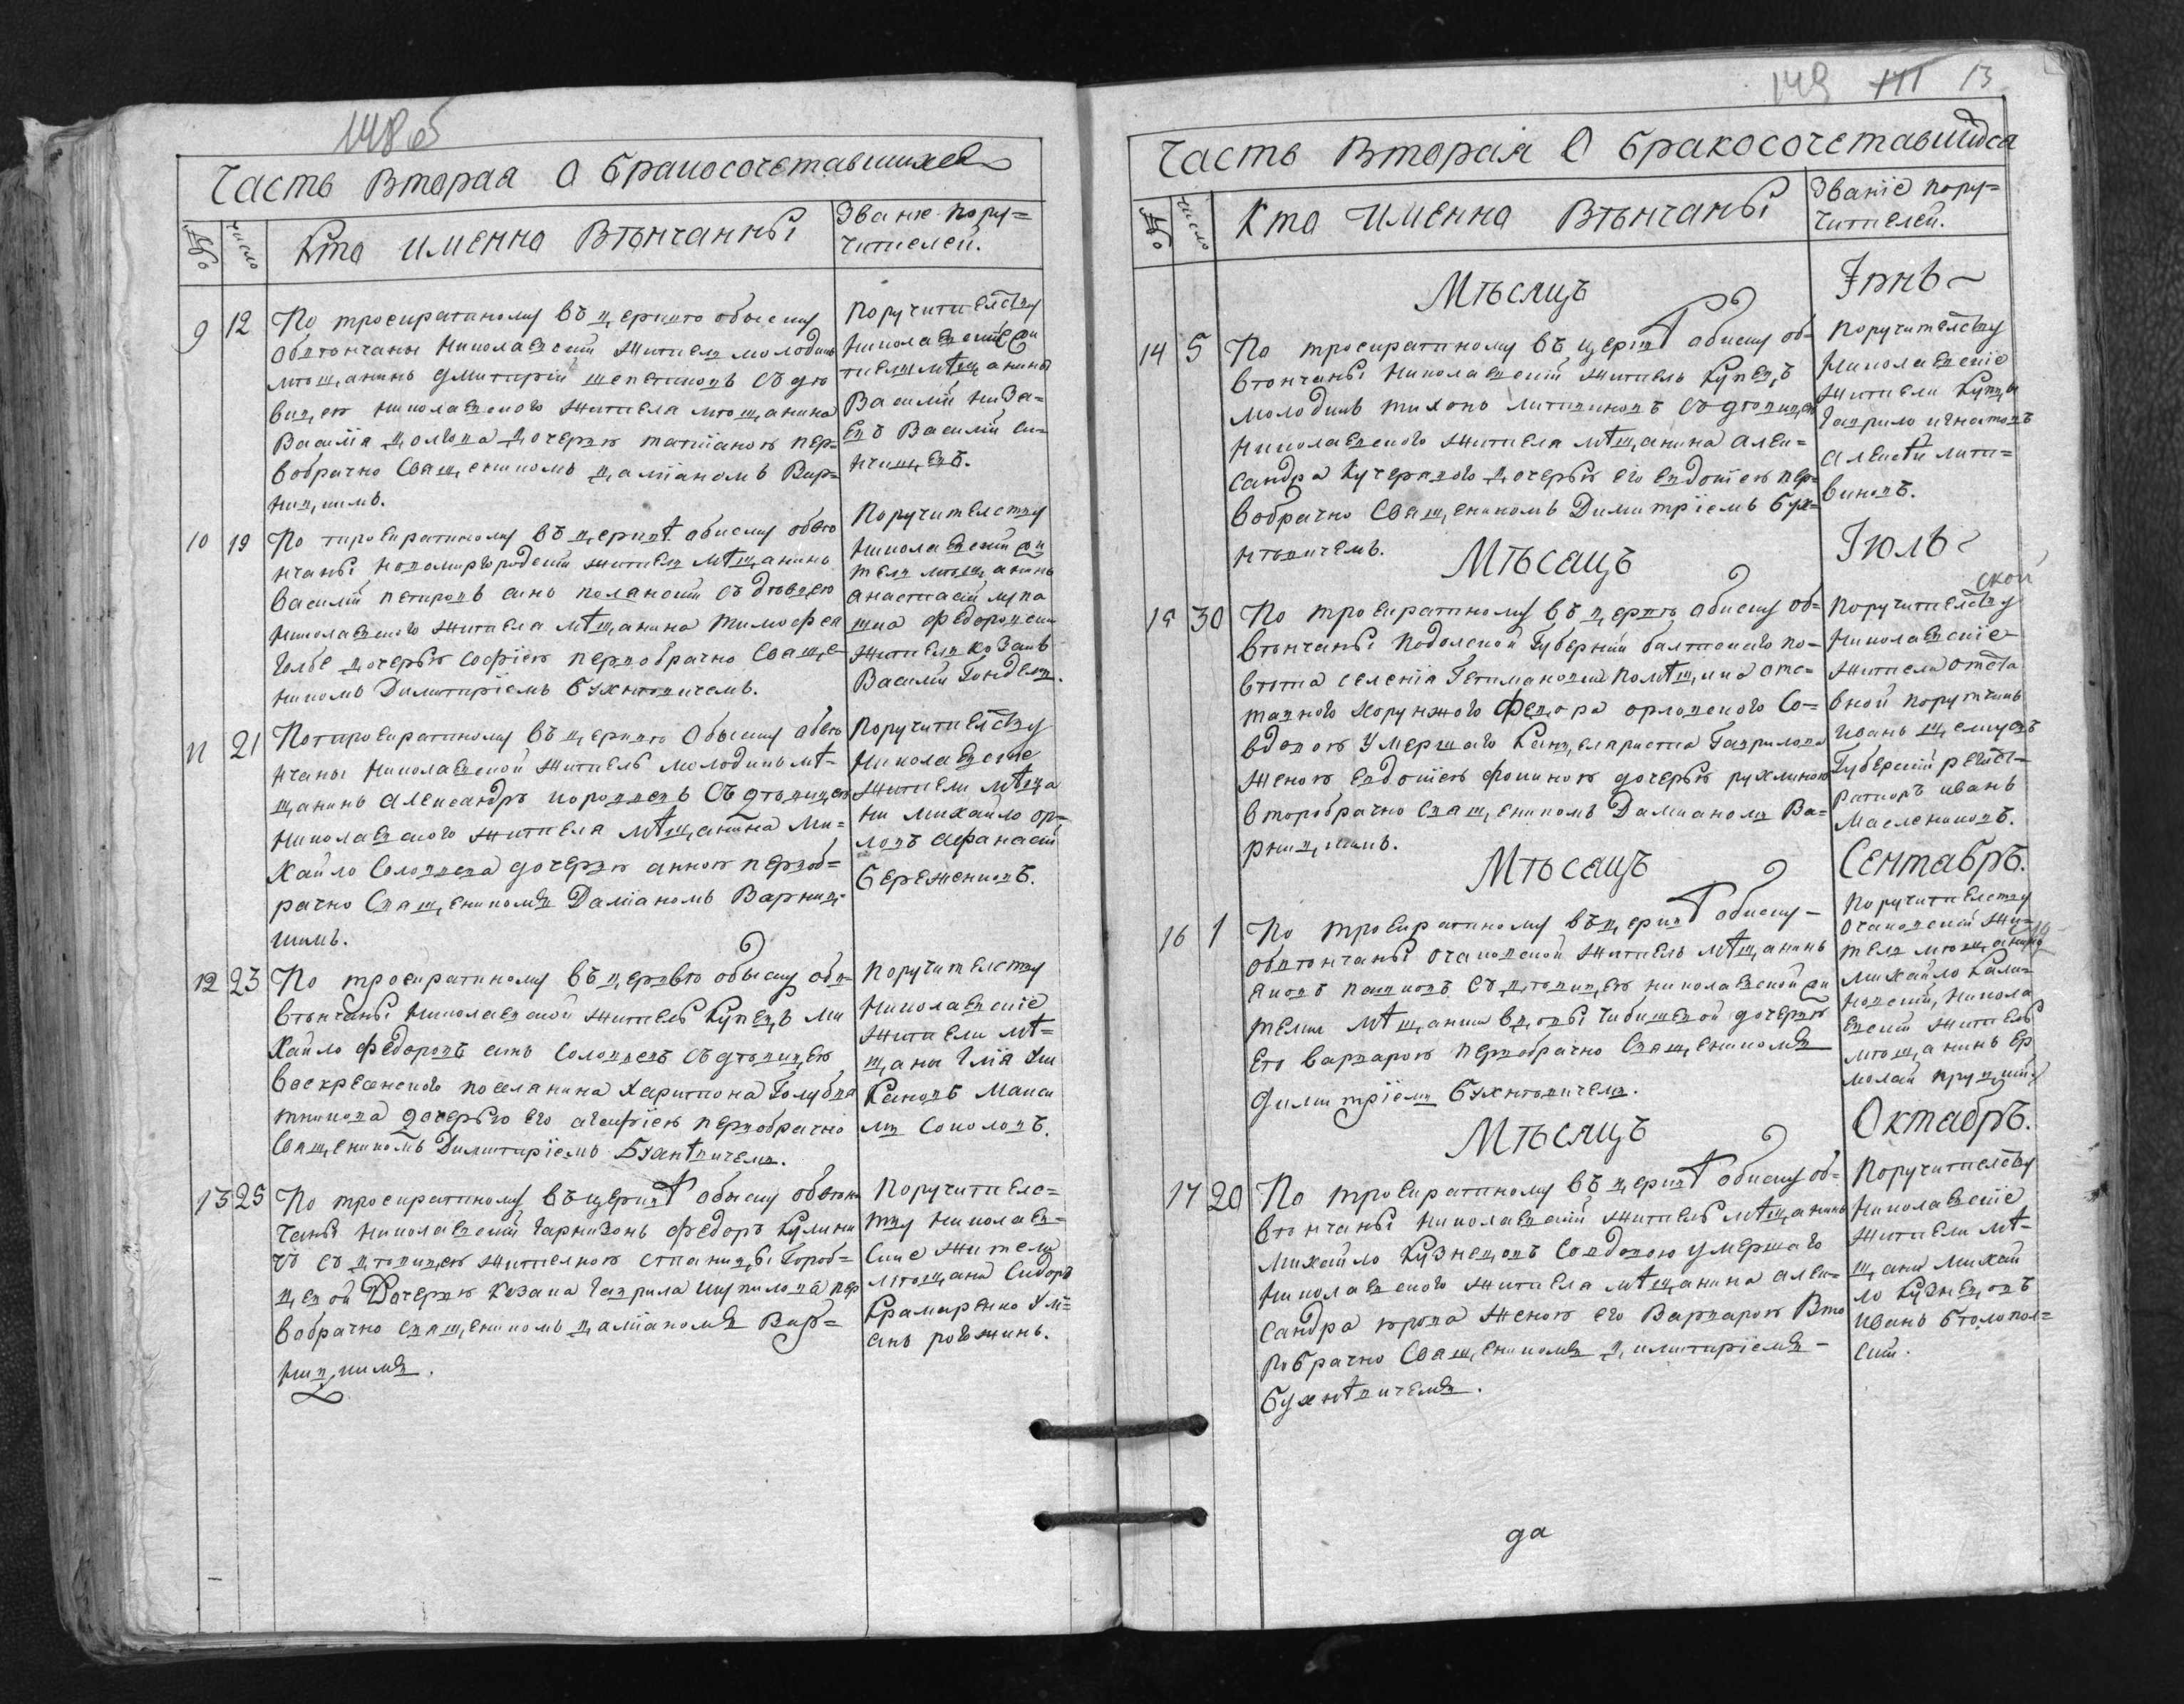 148об
Часть вторая О бракосочетавшихся
№ число Кто именно Вѣнчанны Званіе пору=
чителей.
9 12 По троекратному въ церкве обыску
обвѣнчаны николаевский житель молодикъ
мѣщанинъ дмитирій съ дѣ
вицею николаевского жителя мѣщанина
Василія дочерью татіаною пер=
вобрачно Священикомъ даміаномъ Вар=
ницкимъ.
Поручителству
николаевские жи
тели мѣщанины
Василій
Василій си=
10 19 По троекратному въ церквѣ обиску обвѣ
нчаны новомиргородский житель мѣщанинъ
Василій петровъ синъ полянский съ дѣвицею
николаевского жителя мѣщанина тимофея
дочерью софіею первобрачно Священ
никомъ Димитріемъ Бухнѣвичемъ.
Поручителству
николаевский жи
тель мѣщанинъ
анастасий лупа
житель козакъ
Василий Гондель.
11 21 По троекратному въ церкве обыску обвѣ
нчаны николаевской житель молодикъ мѣ=
щанинъ александръ съ дѣвицею
николаевского жителя мѣщанина ми=
хайло Соловьева дочерью анною первоб=
рачно Священикомъ Даміаномъ Варниц=
кимъ.
Поручителству
николаевские
жители мѣща
ни михайло ор=
ловъ афанасий
Береженковъ.
12 23 По троекратному въ церкве обыску обв=
вѣнчаны николаевской житель купецъ ми
хайло федоровъ синъ соловьевъ съ дѣвицею
воскресенского поселянина харитона Голубя
тникова дочерьго его агафіею первобрачно
Священикомъ Димитріемъ Бухнѣвичемъ.
Поручителству
николаевские
жители мѣ=
щани
макси
мъ соколовъ.
13 25 По троекратному въ церквѣ обыску обвѣн
чаны николаевский гарнизонъ федоръ
съ дѣвицею жителкою станицы
Дочерью козака гаврила пер
вобрачно священикомъ даміаномъ Вар=
ницкимъ.
Поручителс=
тву николаев=
ские жители
мѣщани сидоръ
Крамаренко
149 111 13
Часть Вторая О бракосочетавшихся
№ число Кто Именно Вѣнчаны Званіе пору=
чителей.
Мѣсяцъ Іюнь
14 5 По троекратному въ церквѣ обиску об=
вѣнчаны николаевский житель купецъ
молодикъ тихонъ литвиновъ съ дѣвицею
николаевского жителя мѣщанина алек=
сандра кучерявого дочерью его евдокіею пер=
вобрачно Священикомъ Димитріемъ Бух=
нѣвичемъ.
Поручителству
николаевские
жители купцы
гаврило игнатовъ
алексѣй литв=
виновъ.
Мѣсяцъ Іюль
15 30 По троекратному въ церквѣ обиску об=
вѣнчаны подолской Губерніи балтского по=
вѣта селенія отс=
тавного хорунжого федора орловского со=
вдовою умершаго канцеляриста Гаврилова
женою евдокіею дочерью
второбрачно священикомъ Даміаномъ Ва=
рницкимъ.
ской
Поручителству
николаевские
жители отста
вной порутчикъ
иванъ
Губерский регист=
раторъ иванъ
Маслениковъ.
Мѣсяцъ Сентябрь.
16 1 По троекратному въ церквѣ обиску
обвѣнчаны очаковской житель мѣщанинъ
яковъ пашковъ съ дѣвицею николаевской жи
телки мѣщанки вдовы чибишевой дочерью
его варварою первобрачно Священикомъ
димитріемъ Бухнѣвичемъ.
Поручителству
очаковский жи=
тель мѣщанинъ
михайло кали=
новский, никола
евский житель
мѣщанинъ ер
молай
Мѣсяцъ Октябрь.
17 20 По троекратному въ церквѣ обиску об=
вѣнчаны николаевский житель мѣщанинъ
михайло кузнецовъ совдовою умершаго
николаевского жителя мѣщанина алек=
сандра женою его варварою вто
робрачно Священикомъ димитріемъ
Бухнѣвичемъ.
Поручителству
николаевские
жители мѣ=
щани михай
ло кузнецовъ
иванъ бѣлопол=
ский.
да